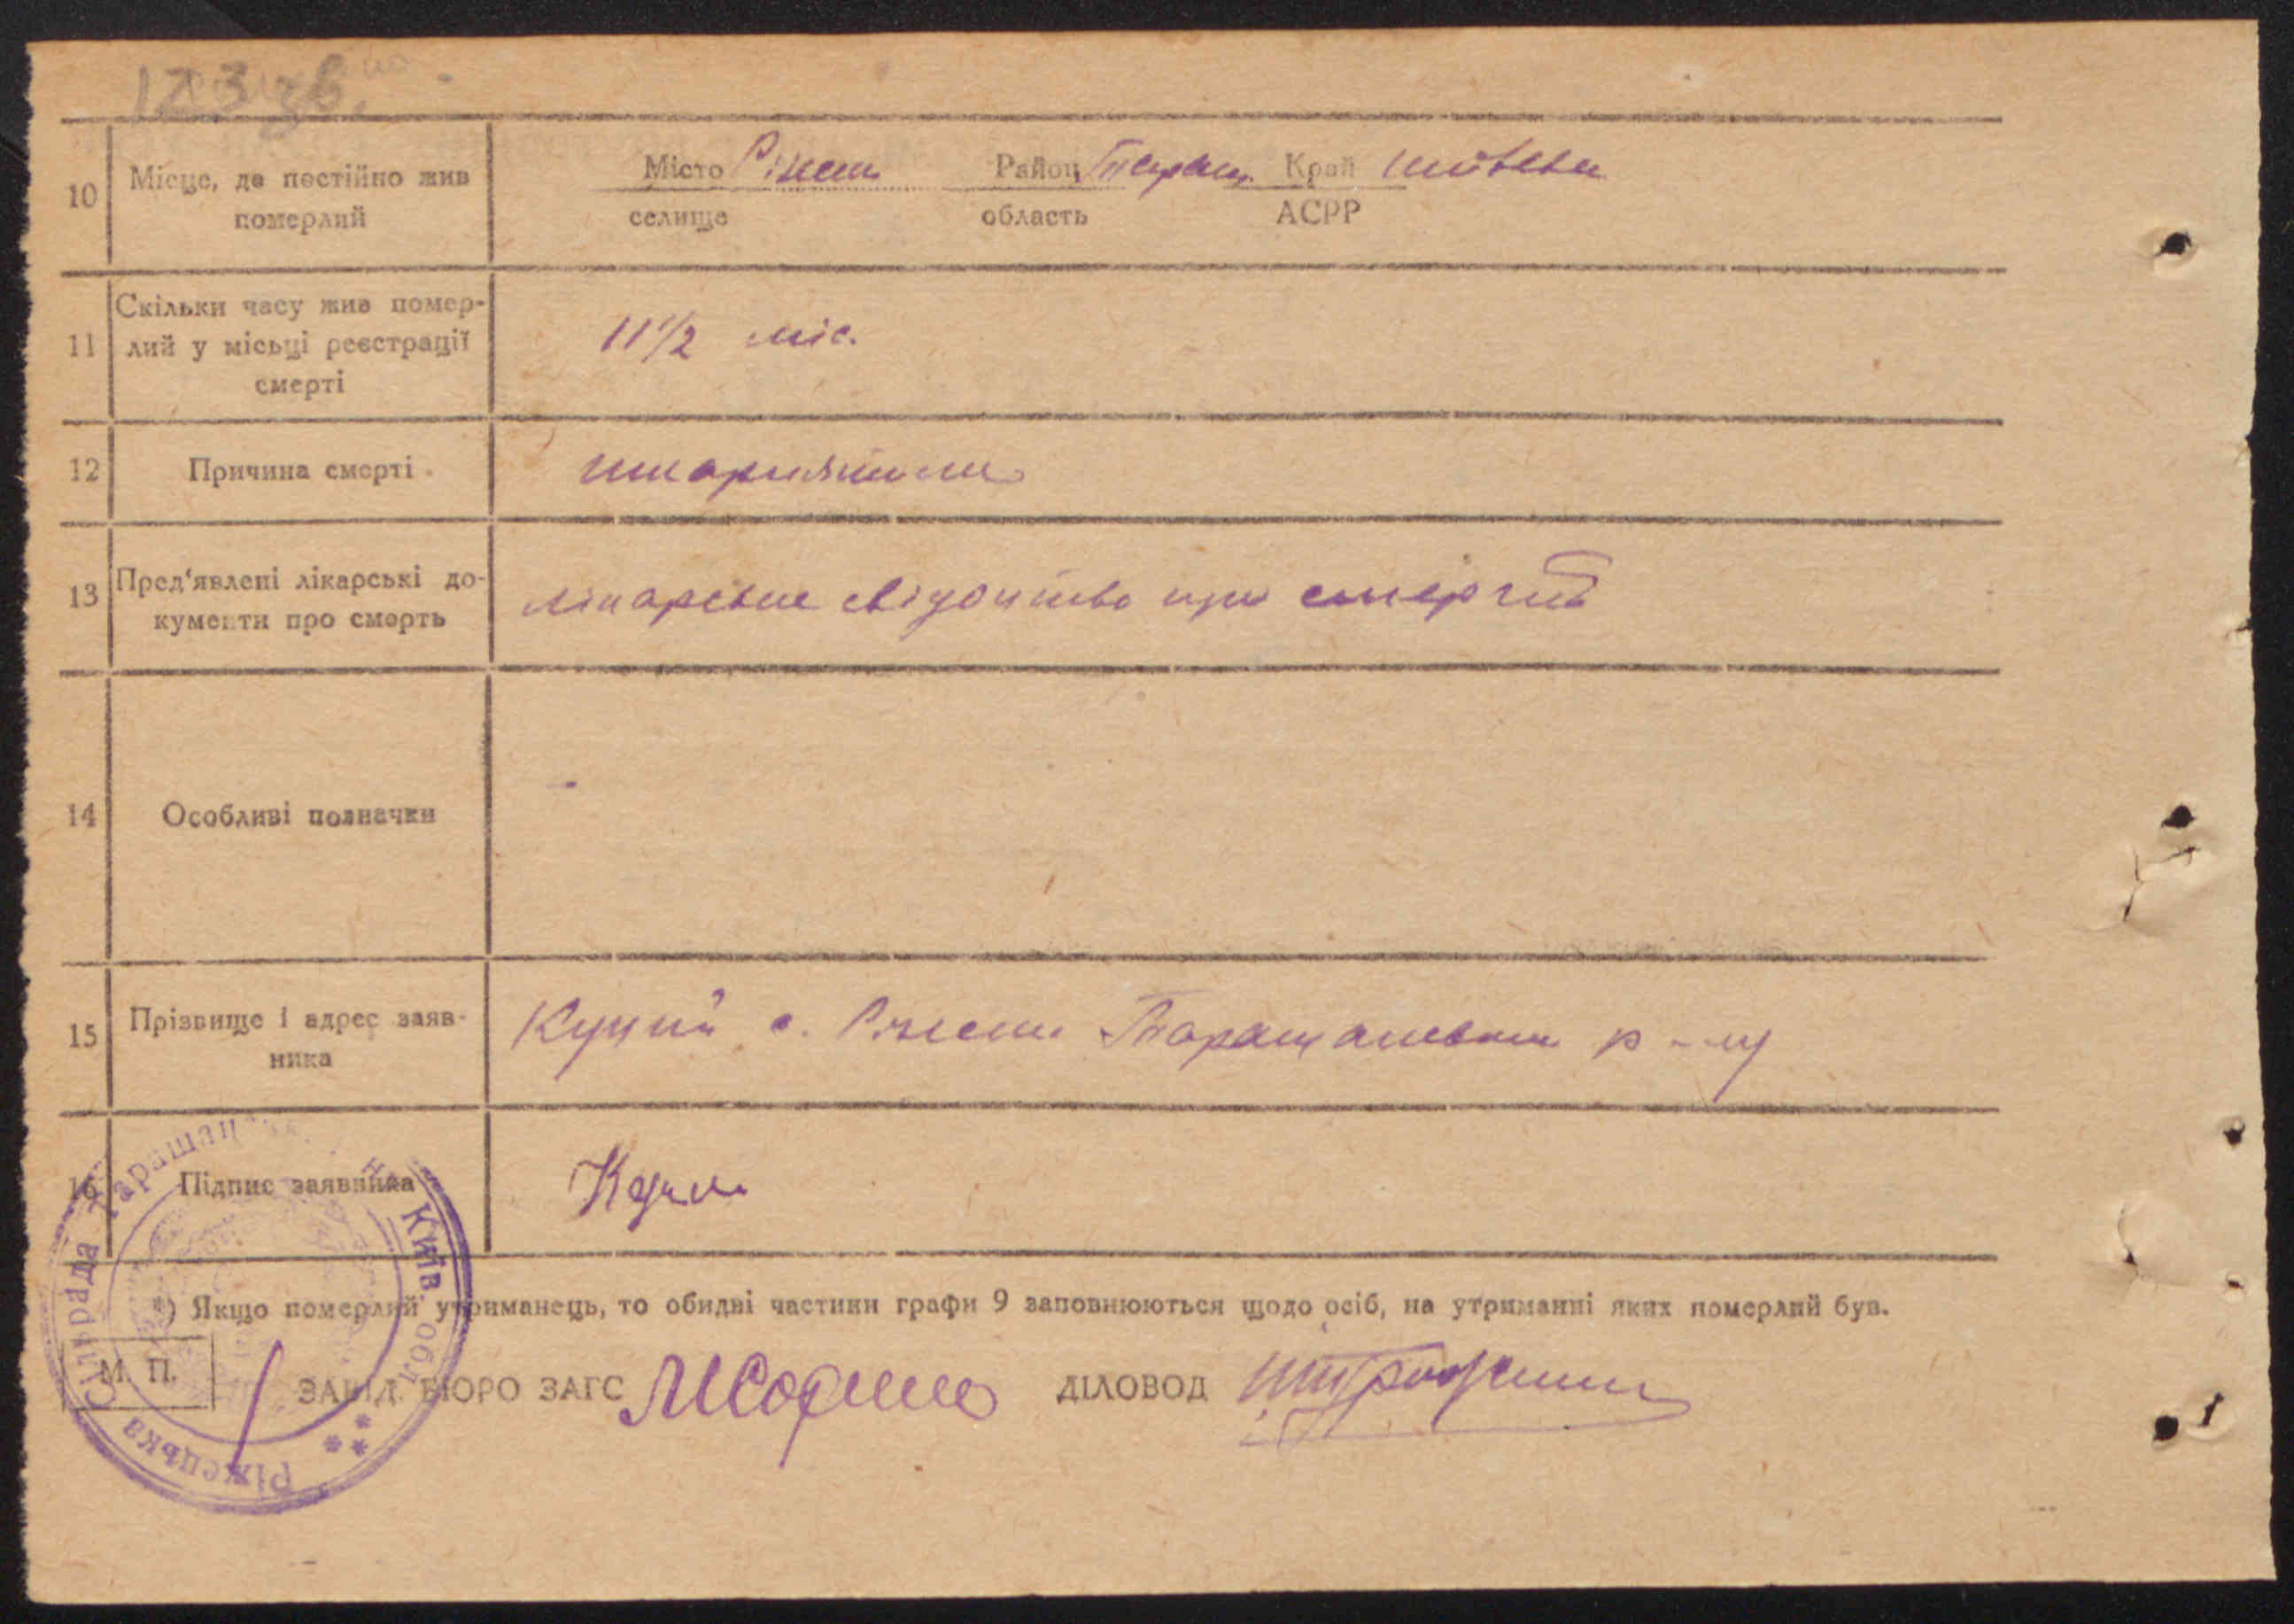 123 зв.
10 Місце, де постійно жив померлий
Місто Ріжки Район Таращ. Край Київська
селище область АСРР
11 Скільки часу жив помер-
лий у місьці реєстрації
смерті
11 1/2 міс.
12 Причина смерті
13 Пред'явлені лікарські до-
кументи про смерть
лікарське свідоцтво про смерть
14 Особливі позначки
15 Прізвище і адрес заяв-
ника
Куций с. Ріжки Таращанськ р-ну
16 Підпис заявника
Куций
*) Якщо померлий утриманець, то обидві частини графи 9 заповнюються щодо осіб, на утриманні яких померлий був.
М. П.
ЗАВІД. БЮРО ЗАГС ДІЛОВОД
Ріжецька Сільрада Таращанськ Київ обл